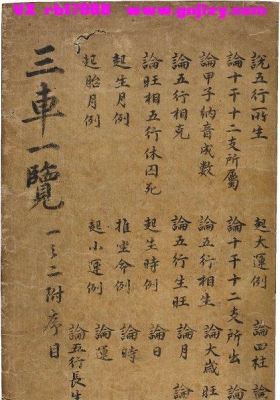 三車一覽 一之二附序目
説五行所生
論十干十二支所屬
論甲子納音成數
論五行相克
論旺相五行休囚死
起生月例
起胎月例
起大運例 論四柱
論十干十二支所出 論
論五行相生 論大歲
論五行生旺 論月
起生時例 論日
推坐命例 論時
起小運例 論運
論五行長生